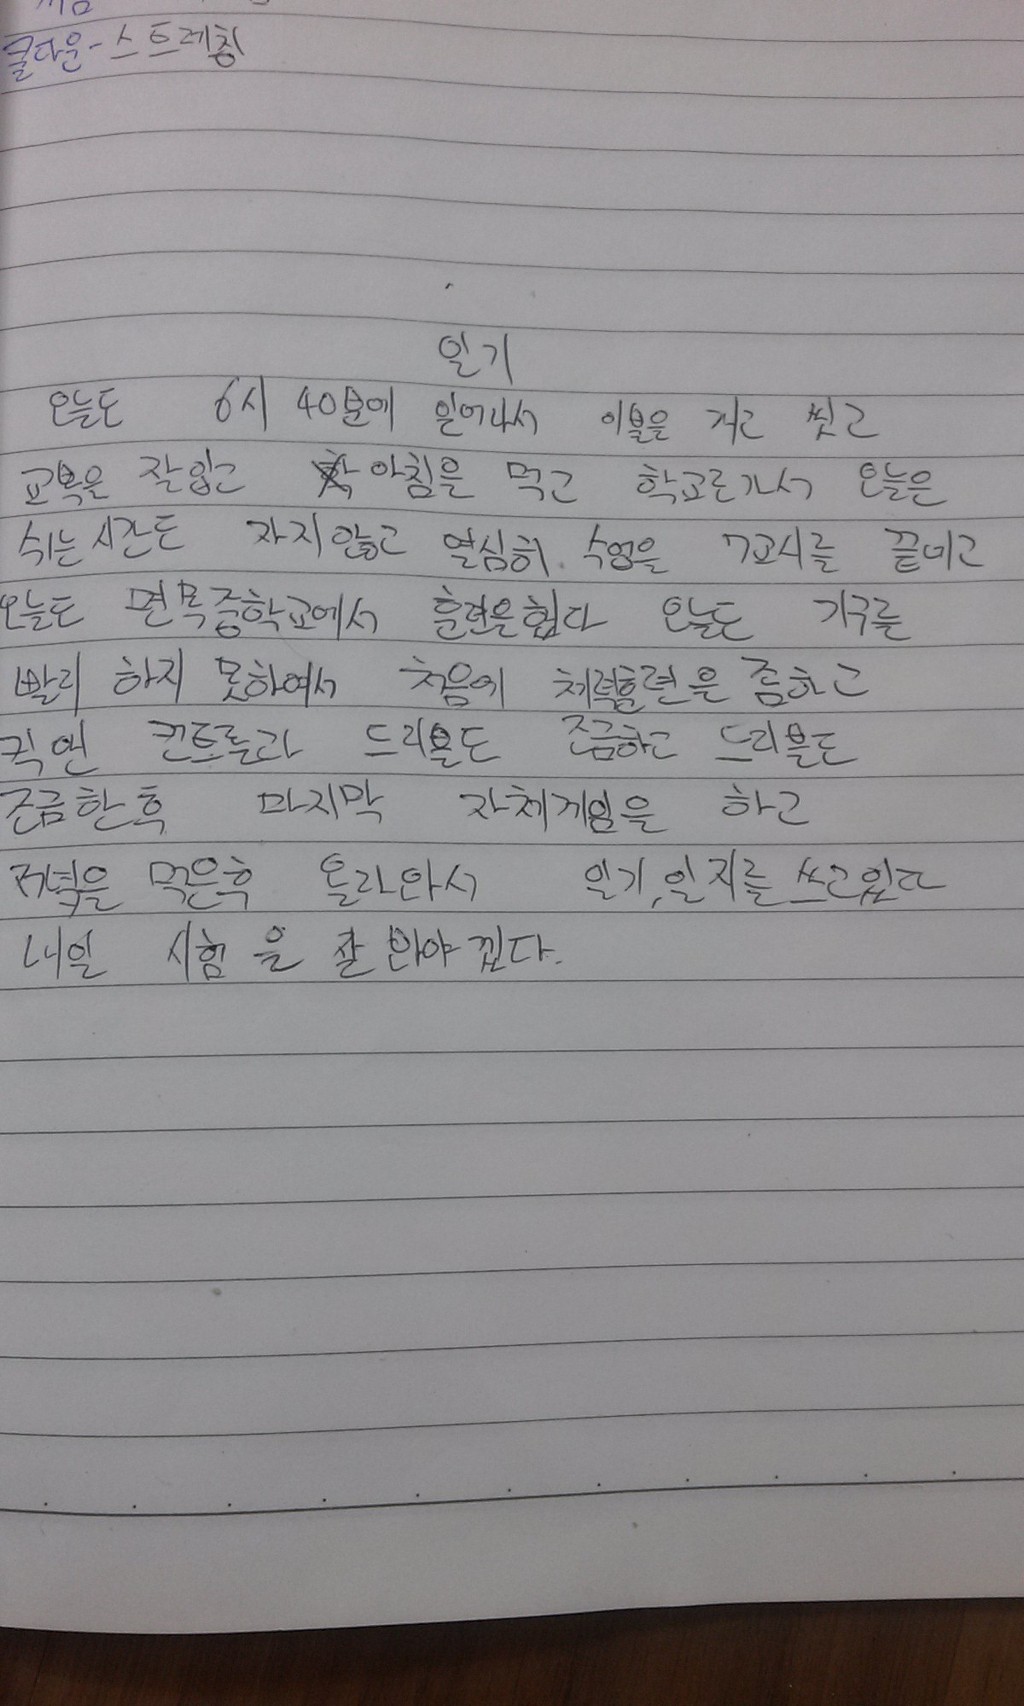 쿨다운-스트레칭
일기
오늘도 6시 40분에 일어나서 이불을 개고 씻고
교복을 잘입고 아침을 먹고 학교를가서 오늘은
쉬는시간도 자지않고 열심히 수업을 7교시를 끝내고
오늘도 면목중학교에서 훈련을했다 오늘도 기구를
빨리 하지 못하여서 처음에 체력훈련을 좀하고
킥앤 컨트롤과 드리블도 조금하고 드리블도
조금한후 마지막 자체게임을 하고
저녁을 먹은후 올라와서 일기,일지를 쓰고있다
내일 시험을 잘 봐야겠다.